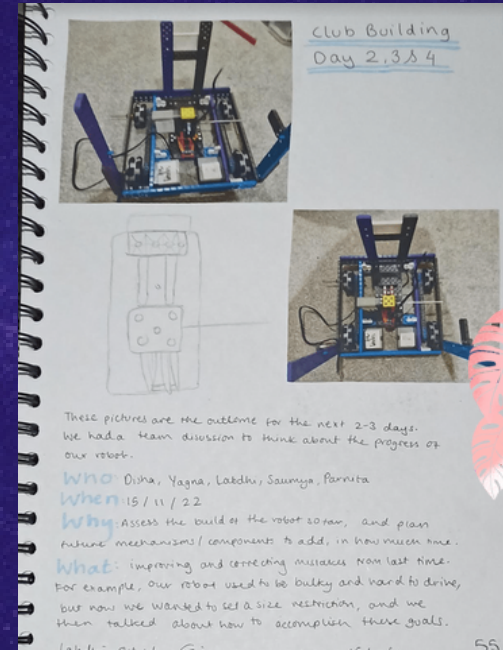 Club Building
Day 2,3 & 4
These pictures are the outcome for the next 2-3 days.
We had a team disussion to think about the progress of
our robot.
Who: Disha, Yagna, Labdhi, Saumya, Parnita
When: 15/11/22
Why: Assess the build of the robot so far, and plan
future mechanisms/components to add, in how much time.
What: improving and correcting mistakes from last time.
For example, our robot used to be bulky and hard to drive,
but now we wanted to set a size restriction, and we
then talked about how to accomplish these goals.
55